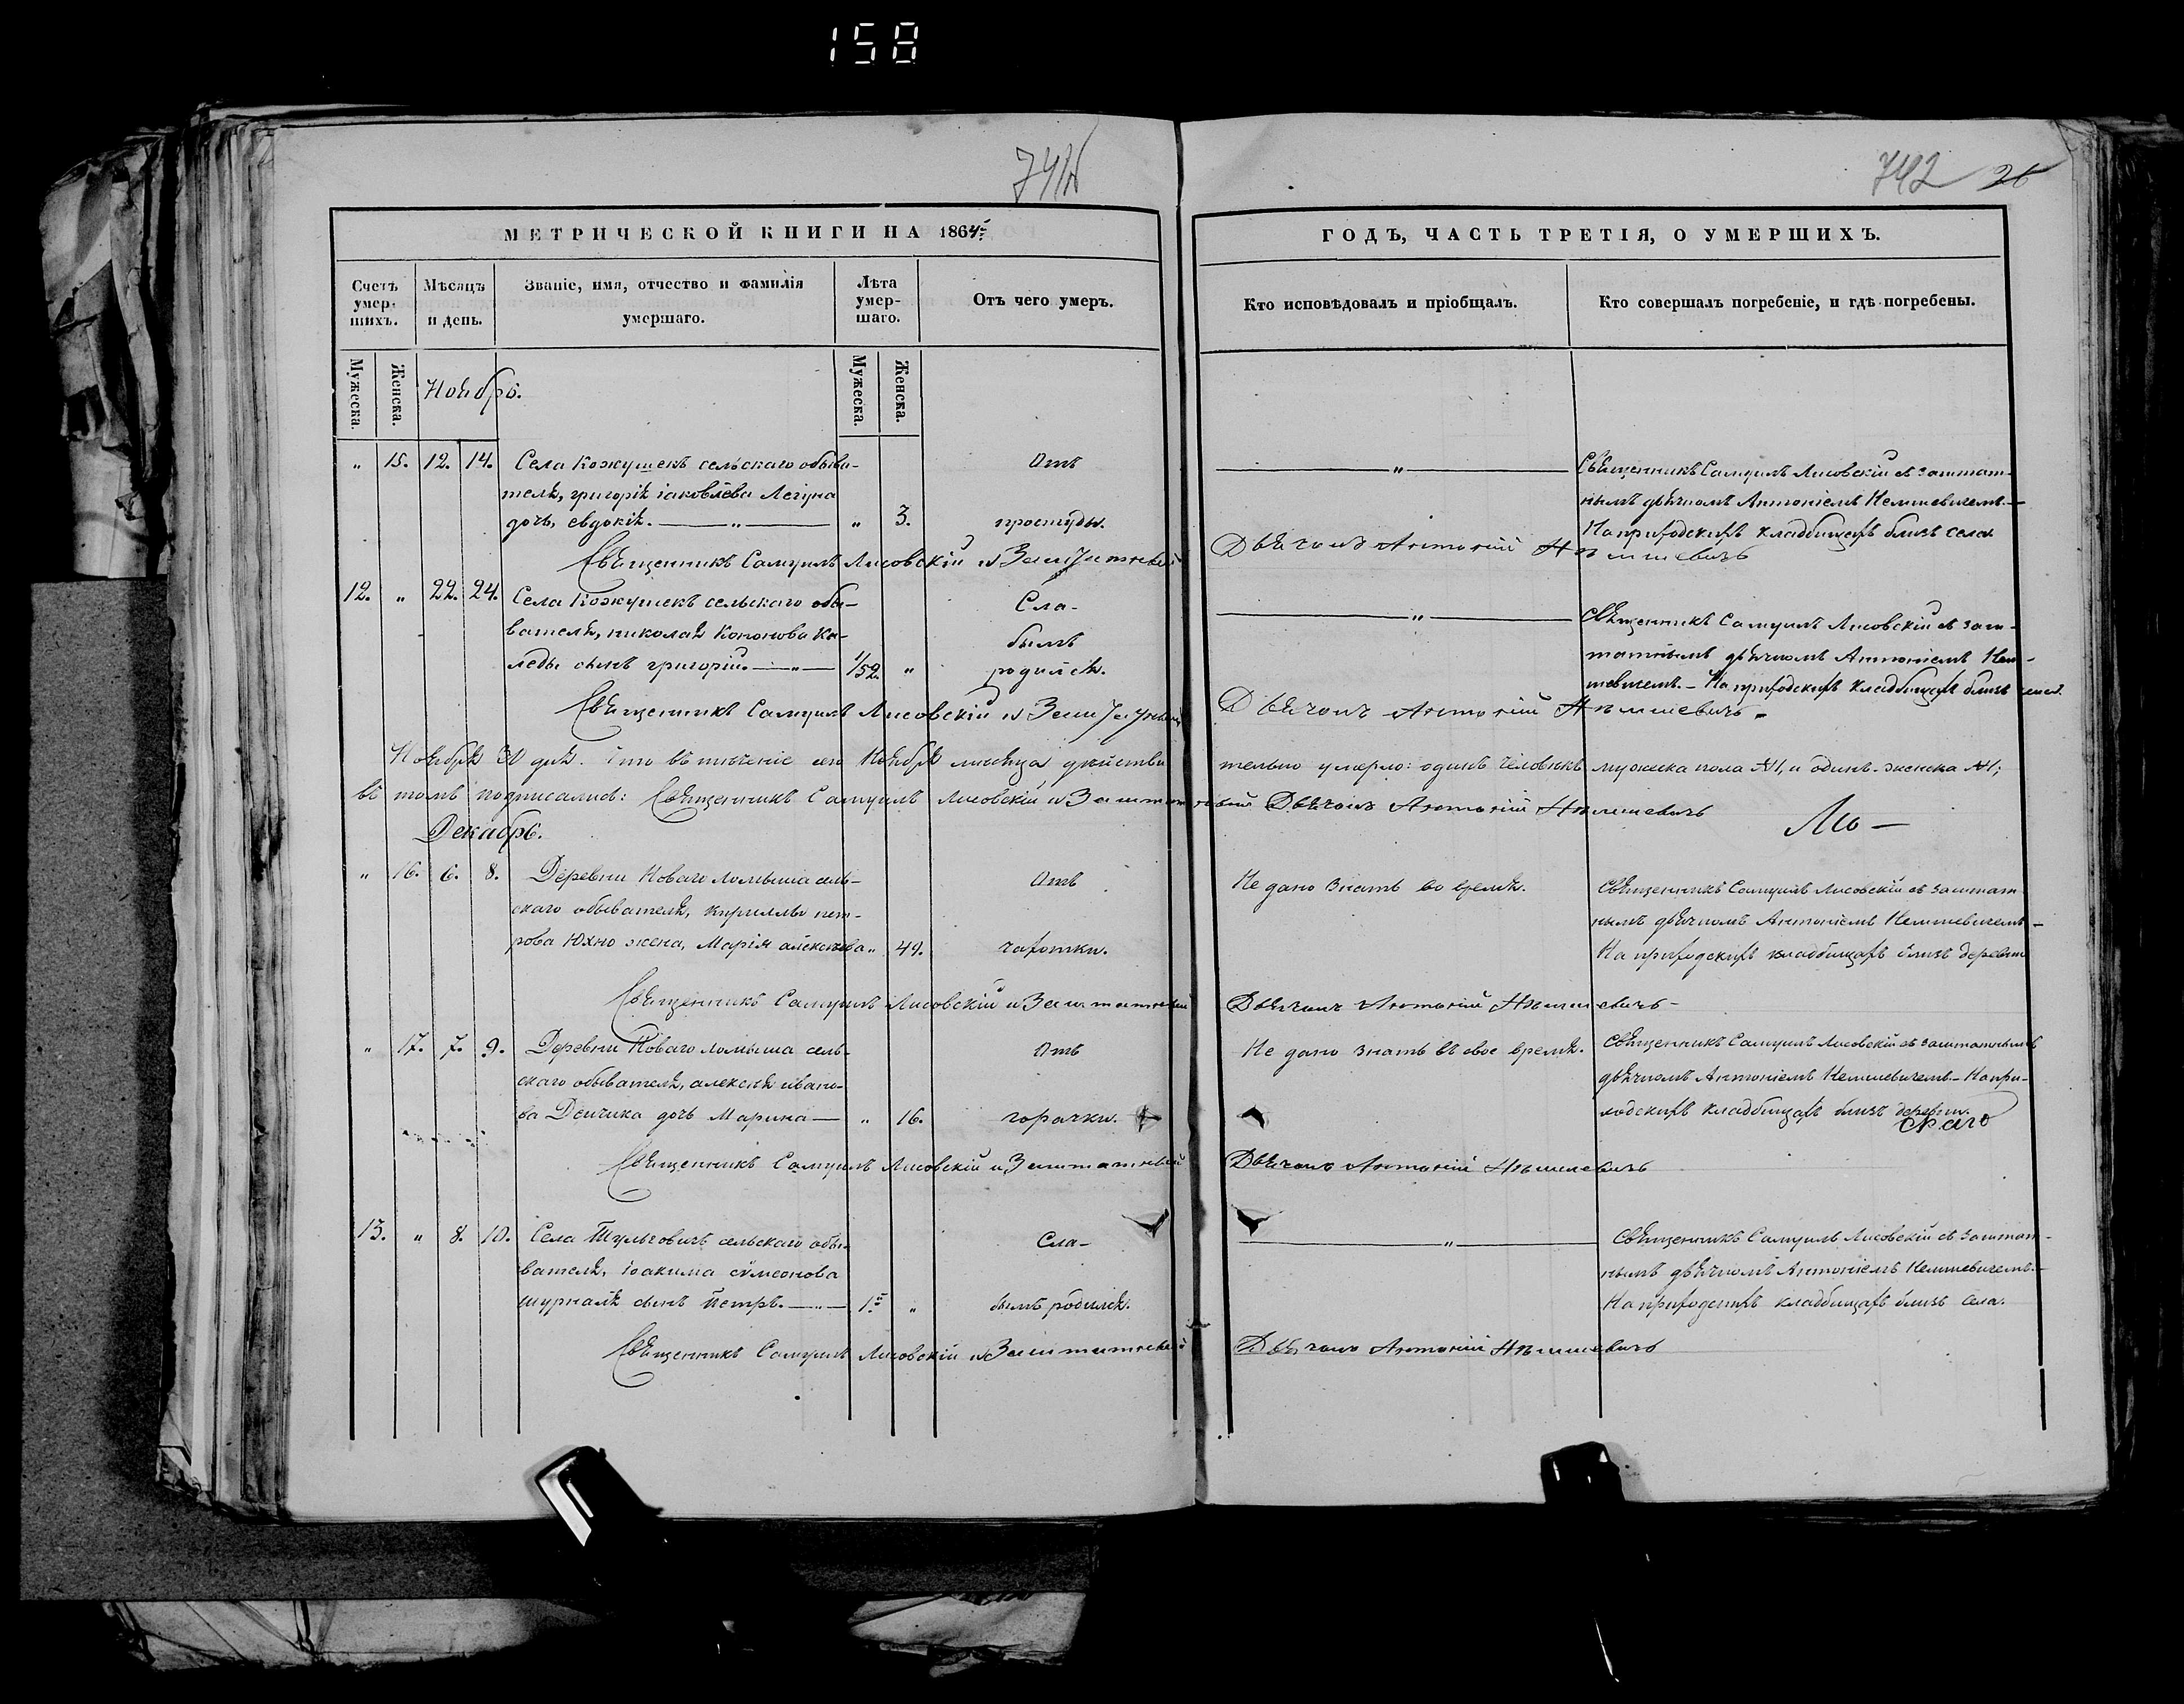 158
741
742 26
МЕТРИЧЕСКОЙ КНИГИ НА 1864
ГОДЪ, ЧАСТЬ ТРЕТІЯ, О УМЕРШИХЪ.
Счетъ умер-шихъ.
Мѣсяцъ и день.
Званіе, имя, отчество и фамилія умершаго.
Лѣта умер-шаго.
Отъ чего умеръ.
Кто исповѣдовалъ и пріобщалъ.
Кто совершалъ погребеніе, и гдѣ погребены.
Мужеска.
Женска.
Ноябрь.
Мужеска.
Женска.
" 15. 12. 14. Села Кожушекъ сельскаго обыва-
теля, григорія іаковлева Легуна
дочь, евдокія. — " — " 3.
Отъ
простуды.
— " —
Священникъ Самуилъ Лисовскій съ заштат-
нымъ дьячкомъ Антоніемъ Немшевичемъ. —
На приходскихъ кладбищахъ близь села
Священникъ Самуилъ Лисовскій и Заштатный
Дьячокъ Антоній Немшевичъ
12. " 22. 24. Села Кожушекъ сельскаго обы-
вателя, николая Кононова Ка-
леды сынъ григорій. — " — 1/52. "
Сла-
бымъ
родился.
— " —
Священникъ Самуилъ Лисовскій съ заш-
татнымъ дьячкомъ Антоніемъ Нем-
шевичемъ. — На приходскихъ кладбищахъ близь села.
Священникъ Самуилъ Лисовскій и Заштатный
Дьячокъ Антоній Немшевичъ.
Ноября 30 дня. Что въ теченіе сего Ноября мѣсяца действи тельно умерло: одинъ человѣкъ мужеска пола №1, и одинъ женска №1;
въ томъ подписались: Священникъ Самуилъ Лисовскій и Заштатный Дьячокъ Антоній Немшевичъ
Декабрь.
Ли —
" 16. 6. 8. Деревни Новаго ломыша сель-
скаго обывателя, кириллы пет-
рова Юхно жена, Марія алексѣева " 49.
Отъ
чахотки.
Не дано знать во время.
Священникъ Самуилъ Лисовскій съ заштат
нымъ дьячкомъ Антоніемъ Немшевичемъ —
На приходскихъ кладбищахъ близь деревни
Священникъ Самуилъ Лисовскій и Заштатный
Дьячокъ Антоній Немшевичъ —
" 17. 7. 9. Деревни Новаго ломыша сель-
скаго обывателя, алексѣя ивано-
ва Дейчика дочь Марина — " 16.
Отъ
горячки.
Не дано знать въ свое время.
Священникъ Самуилъ Лисовскій съ заштатнымъ
дьячкомъ Антоніемъ Немшевичемъ. — На при-
ходскихъ кладбищахъ близь деревни.
Священникъ Самуилъ Лисовскій и Заштатный
Дьячокъ Антоній Немшевичъ
13. " 8. 10. Села Тульговичъ сельскаго обы-
вателя, іоакима сѵмеонова
шурналя сынъ Петръ. — " — 1. "
Сла-
бымъ родился.
— " —
Священникъ Самуилъ Лисовскій съ заштат-
нымъ дьячкомъ Антоніемъ Немшевичемъ. —
На приходскихъ кладбищахъ близь села.
Священникъ Самуилъ Лисовскій и Заштатный
Дьячокъ Антоній Немшевичъ